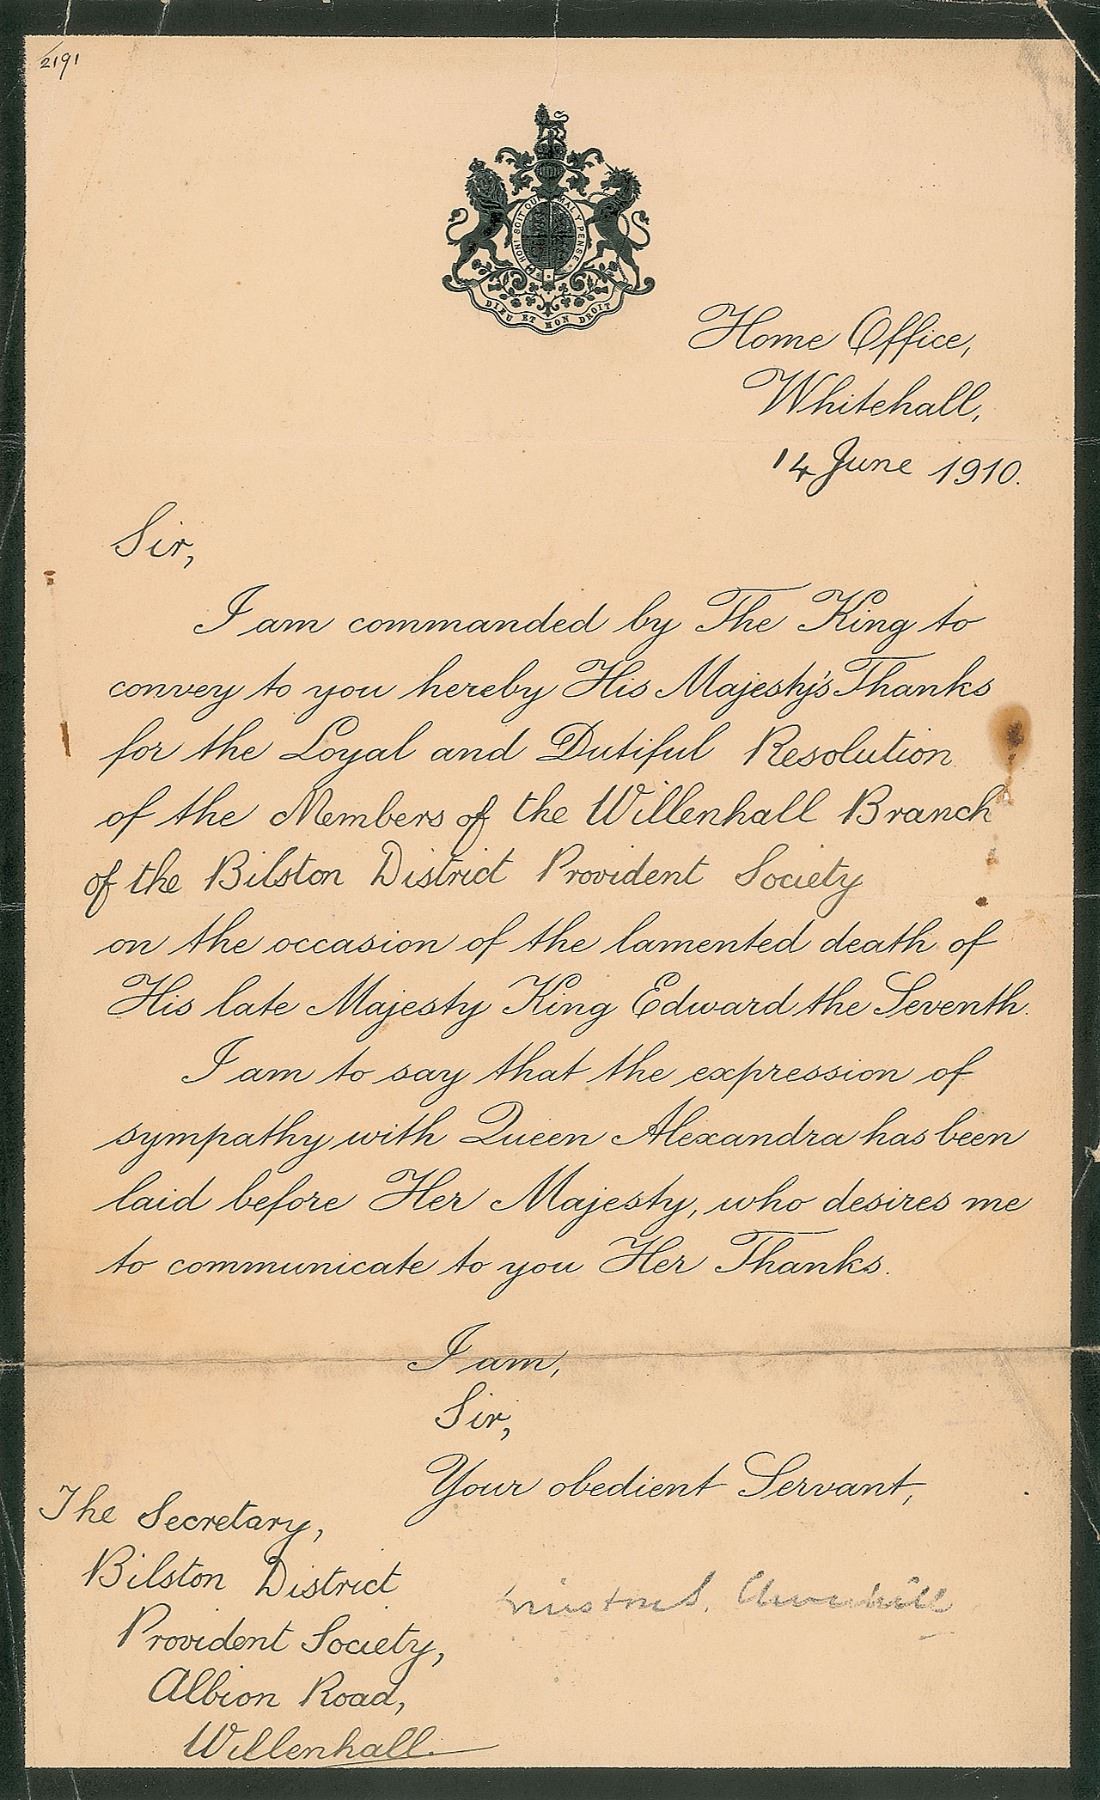 2191
HONI SOIT QUI MAL Y PENSE
DIEU ET MON DROIT
Home Office,
Whitehall,
14 June 1910.
Sir,
I am commanded by The King to
convey to you hereby His Majesty's Thanks
for the Loyal and Dutiful Resolution
of the Members of the Willenhall Branch
of the Bilston District Provident Society
on the occasion of the lamented death of
His late Majesty King Edward the Seventh.
I am to say that the expression of
sympathy with Queen Alexandra has been
laid before Her Majesty, who desires me
to communicate to you Her Thanks.
I am,
Sir,
Your obedient Servant,
Winston S. Churchill
The Secretary,
Bilston District
Provident Society,
Albion Road,
Willenhall.